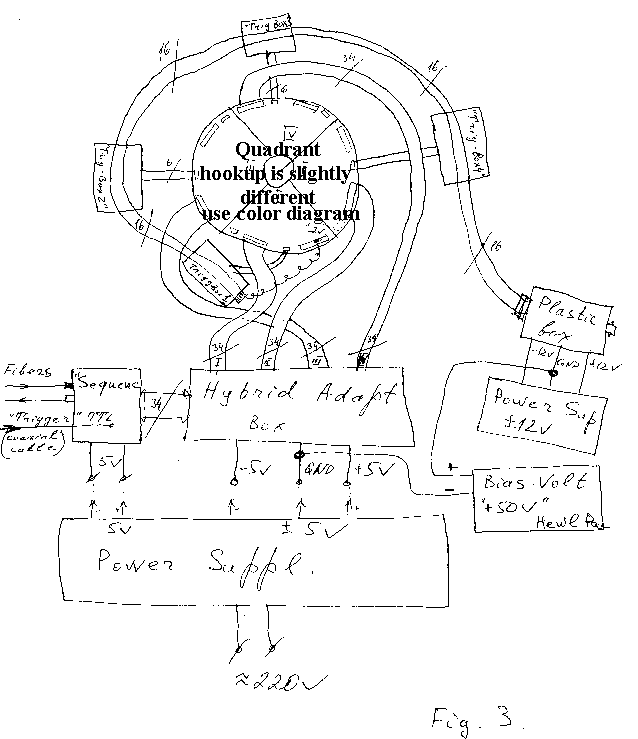 "Trig Box
16
34
16
6
Quadrant
hookup is slightly
different
use color diagram
IV
6
"Trig-Box 2"
16
16
Plastic
box
-12V GND +12V
Power Sup
±12V
34 34 34 34
I II III IV
Fibers
"Sequenc
34
Hybrid Adapt
Box
"Trigger" TTL
(coaxial
cable)
5V
-5V GND +5V
+
-
Bias-Volt
"+50V"
Hewl Pac
5V
± 5V
Power Suppl.
≈220V
Fig. 3.